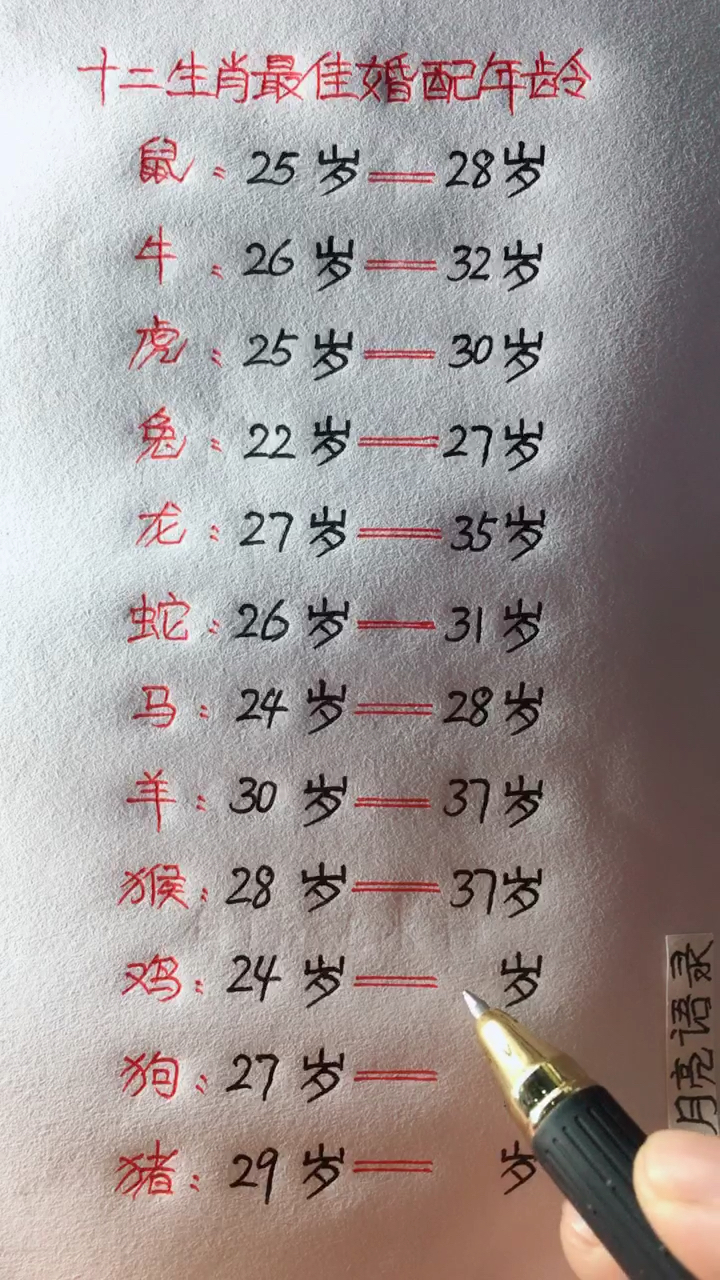 十二生肖最佳婚配年龄
鼠：25岁——28岁
牛：26岁——32岁
虎：25岁——30岁
兔：22岁——27岁
龙：27岁——35岁
蛇：26岁——31岁
马：24岁——28岁
羊：30岁——37岁
猴：28岁——37岁
鸡：24岁—— 岁
狗：27岁——
猪：29岁—— 岁
月亮语录